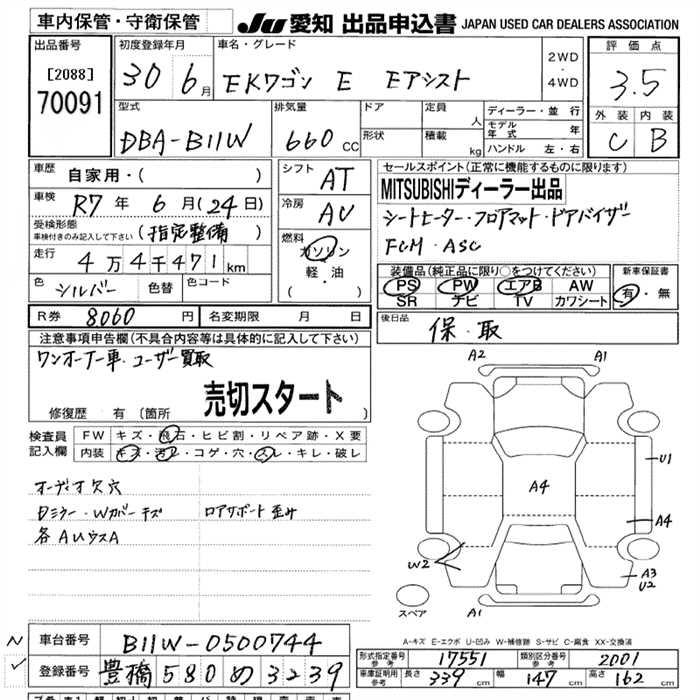 車内保管・守衛保管
JU 愛知 出品申込書 JAPAN USED CAR DEALERS ASSOCIATION
出品番号
[2088]
70091
初度登録年月
30 6月
車名・グレード
EKワゴン E Eアシスト
2WD
・
4WD
評価点
3.5
外装 内装
C B
型式
DBA-B11W
排気量
660 CC
ドア
形状
定員 人
積載 kg
ディーラー・並行
モデル年式 年
ハンドル 左・右
車歴
自家用・( )
車検
R7年 6月(24日)
受検形態
車検付きのみ記入して下さい
(指定整備)
走行
4万4千471km
色
シルバー
色替
色コード
シフト
AT
冷房
AC
燃料
ガソリン
軽・油
( ・ )
セールスポイント(正常に機能するものに限ります)
MITSUBISHIディーラー出品
シートヒーター・フロアマット・ドアバイザー
FCM・ASC
装備品(純正品に限り○をつけてください)
PS PW エアB AW
SR ナビ TV カワシート
新車保証書
有・無
R券 8060円
名変期限 月 日
後日品
保・取
注意事項申告欄(不具合内容等は具体的に記入して下さい)
ワンオーナー車・ユーザー買取
売切スタート
修復歴 有(箇所
検査員
記入欄
FW キズ・飛石・ヒビ割・リペア跡・X要
内装 キズ・汚れ・コゲ・穴・スレ・キレ・破レ
オーディオ欠穴
Dミラー・Wカバーキズ ロアサポート歪み
各AUウスA
A2 A1
U1
A4
A4
W2
A3
U2
スペア
A1
A-キズ E-エクボ U-凹み W-補修跡 S-サビ C-腐食 XX-交換済
N
車台番号
B11W-0500744
✓
登録番号
豊橋 580 め 3239
形式指定番号
参考
17551
類別区分番号
参考
2001
車庫証明用
参考
長さ 339cm 幅 147cm 高さ 162cm